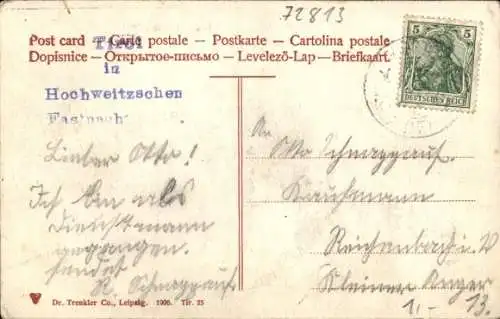 72813
Post card — Carte postale — Postkarte — Cartolina postale
Dopisnice — Открытое-письмо — Levelező-Lap — Briefkaart.
Tirol
in
Hochweitzschen
Fastnacht
5 5
DEUTSCHES REICH
Lieber Otto!
Ich bin als
Dienstmann
gegangen.
sendet
R. Schnappauf
An
Otto Schnappauf
Kaufmann
Reichenbach i. V
Kleiner Anger
1,- 13.
Dr. Trenkler Co., Leipzig. 1906. Tir. 25